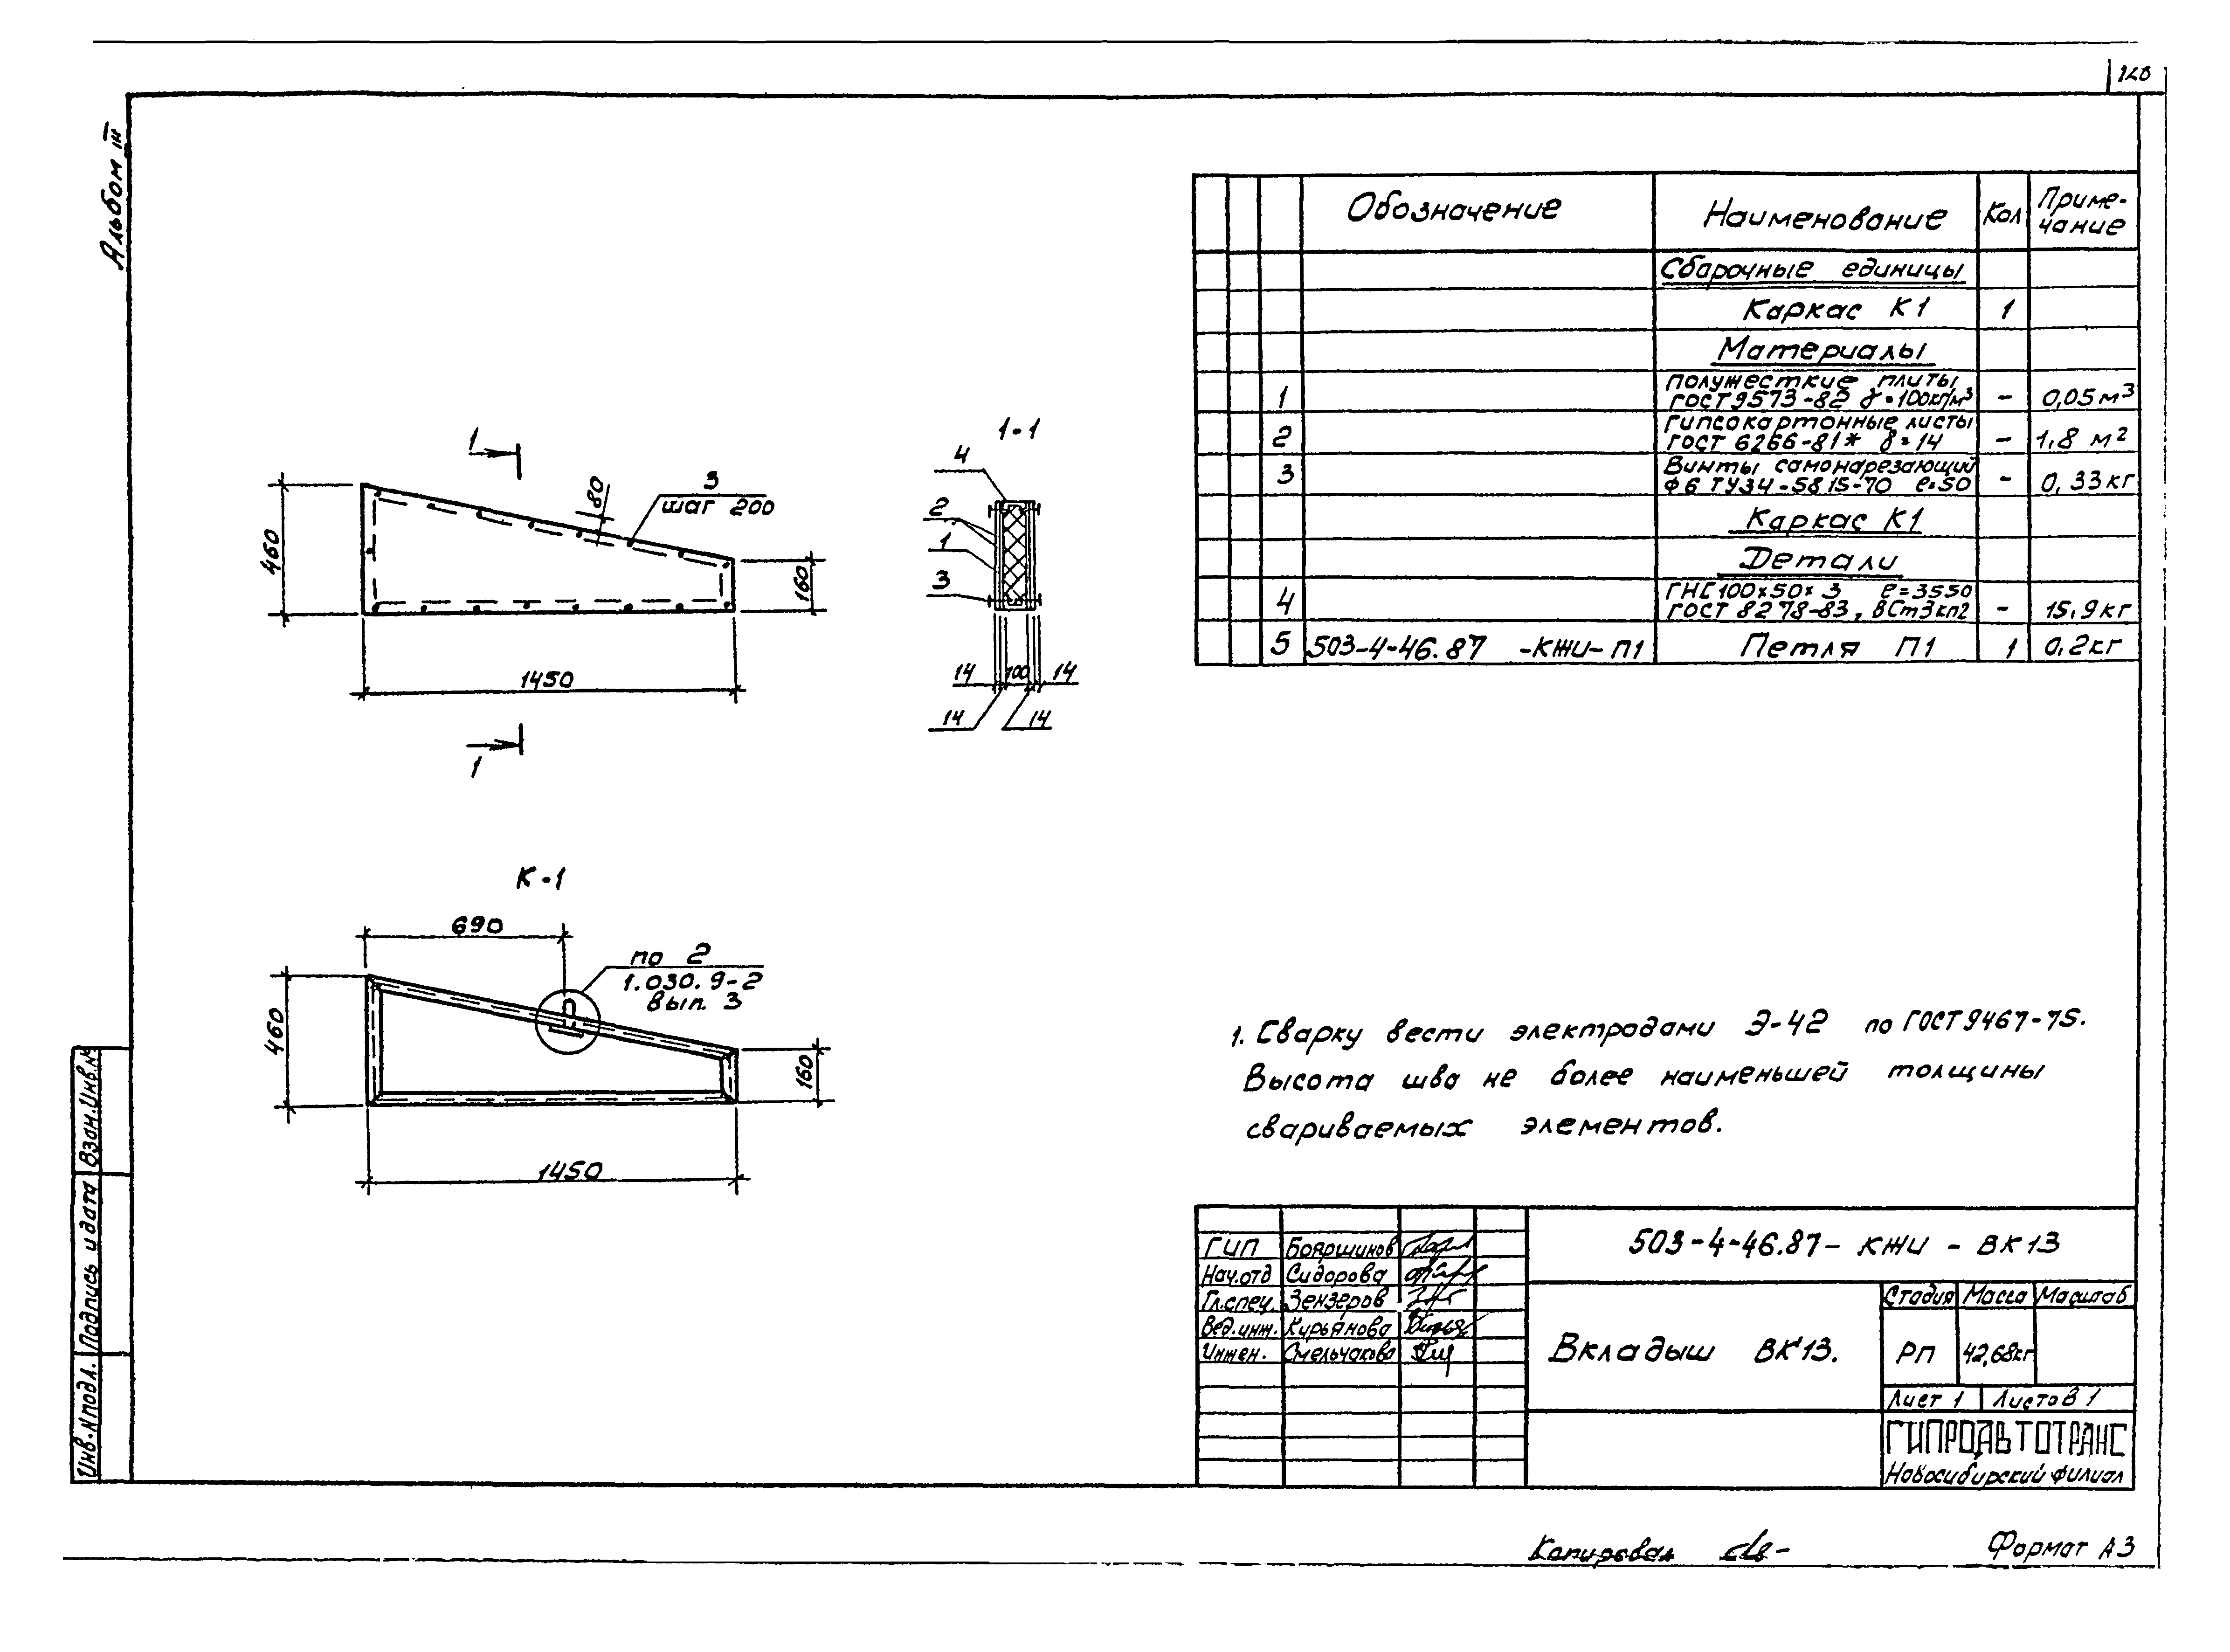 128
Альбом III
Обозначение Наименование Кол Приме-
чание
Сборочные единицы
Каркас К1 1
Материалы
1 Полужесткие плиты
ГОСТ 9573-82 γ=100кг/м³ - 0,05 м³
2 Гипсокартонные листы
ГОСТ 6266-81* δ=14 - 1,8 м²
3 Винты самонарезающий
Ф6 ТУ34-5815-70 ℓ=50 - 0,33 кг
Каркас К1
Детали
4 ГНС 100х50х3 ℓ=3550
ГОСТ 8278-83, ВСт3кп2 - 15,9 кг
5 503-4-46.87 -КЖИ-П1 Петля П1 1 0,2 кг
1
1-1
4
80
3
шаг 200
460
160
2
1
3
1450
14 100 14
14 14
1
К-1
690
по 2
1.030.9-2
вып. 3
460
160
1450
1. Сварку вести электродами Э-42 по ГОСТ 9467-75.
Высота шва не более наименьшей толщины
свариваемых элементов.
Взам.Инв.№
Подпись и дата
Инв.№подл.
503-4-46.87- КЖИ - ВК13
ГИП Бояршинов
Нач.отд Сидорова
Гл.спец. Зензеров
Вед.инж. Кирьянова
Инжен. Смельчакова
Вкладыш ВК13.
Стадия Масса Масштаб
РП 42,68кг
Лист 1 Листов 1
ГИПРОАВТОТРАНС
Новосибирский филиал
Копировал
Формат А3